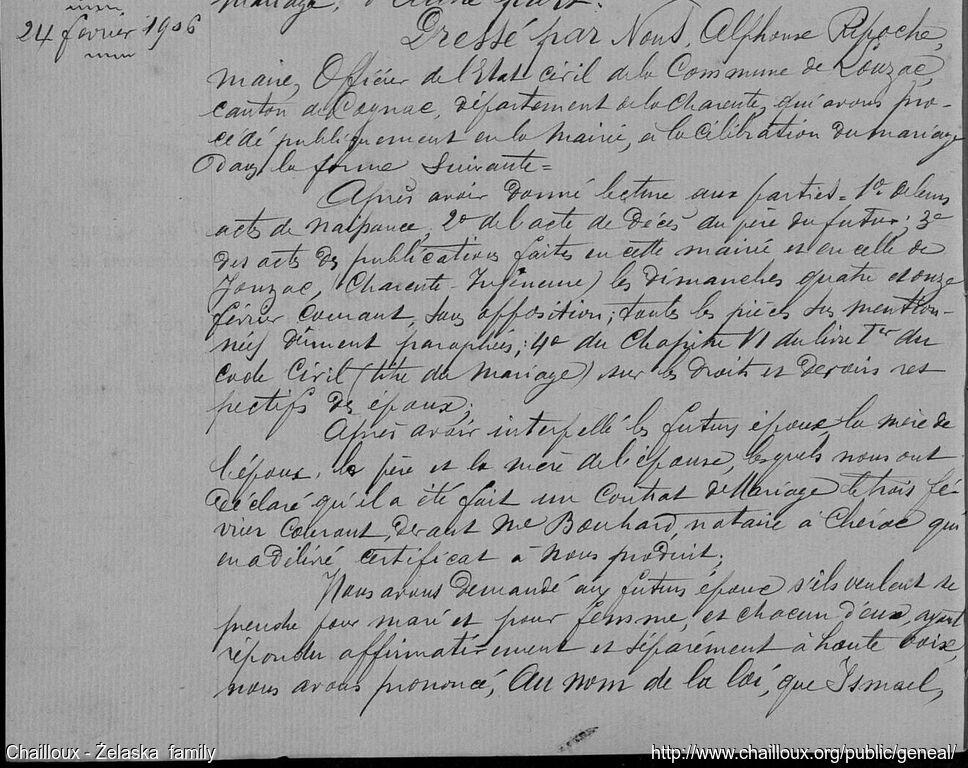 mariage, d'autre part.
24 février 1906
Dressé par Nous, Alphonse Repoche,
maire, Officier de l'Etat civil de la Commune de Louzac,
canton de Cognac, département de la Charente, qui avons pro-
cédé publiquement en la Mairie, à la célébration du mariage
dans la forme suivante=
Après avoir donné lecture aux parties. 1o de leurs
acts de naissance, 2o de l'acte de décès du père du futur; 3o
des acts de publications faites en cette mairie et en celle de
Charente-Inférieure) les dimanches quatre et onze
février courant, sans opposition; toutes les pièces sus mention-
nées dûment paraphées; 4o du Chapitre VI du livre 1er du
Code Civil (titre du Mariage) sur les droits et devoirs res
pectifs des époux;
Après avoir interpellé les futurs époux, la mère de
l'époux, le père et la mère de l'épouse, lesquels nous ont
déclaré qu'il a été fait un contrat de Mariage le trois fé-
vrier courant, devant Me Bouhard, notaire à Chérac qui
en a délivré certificat à nous produit;
Nous avons demandé aux futurs époux s'ils veulent se
prendre pour mari et pour femme, et chacun d'eux, ayant
répondu affirmativement et séparément à haute voix,
nous avons prononcé, Au nom de la loi, que Ismael,
Chailloux - Želaska family
http://www.chailloux.org/public/geneal/